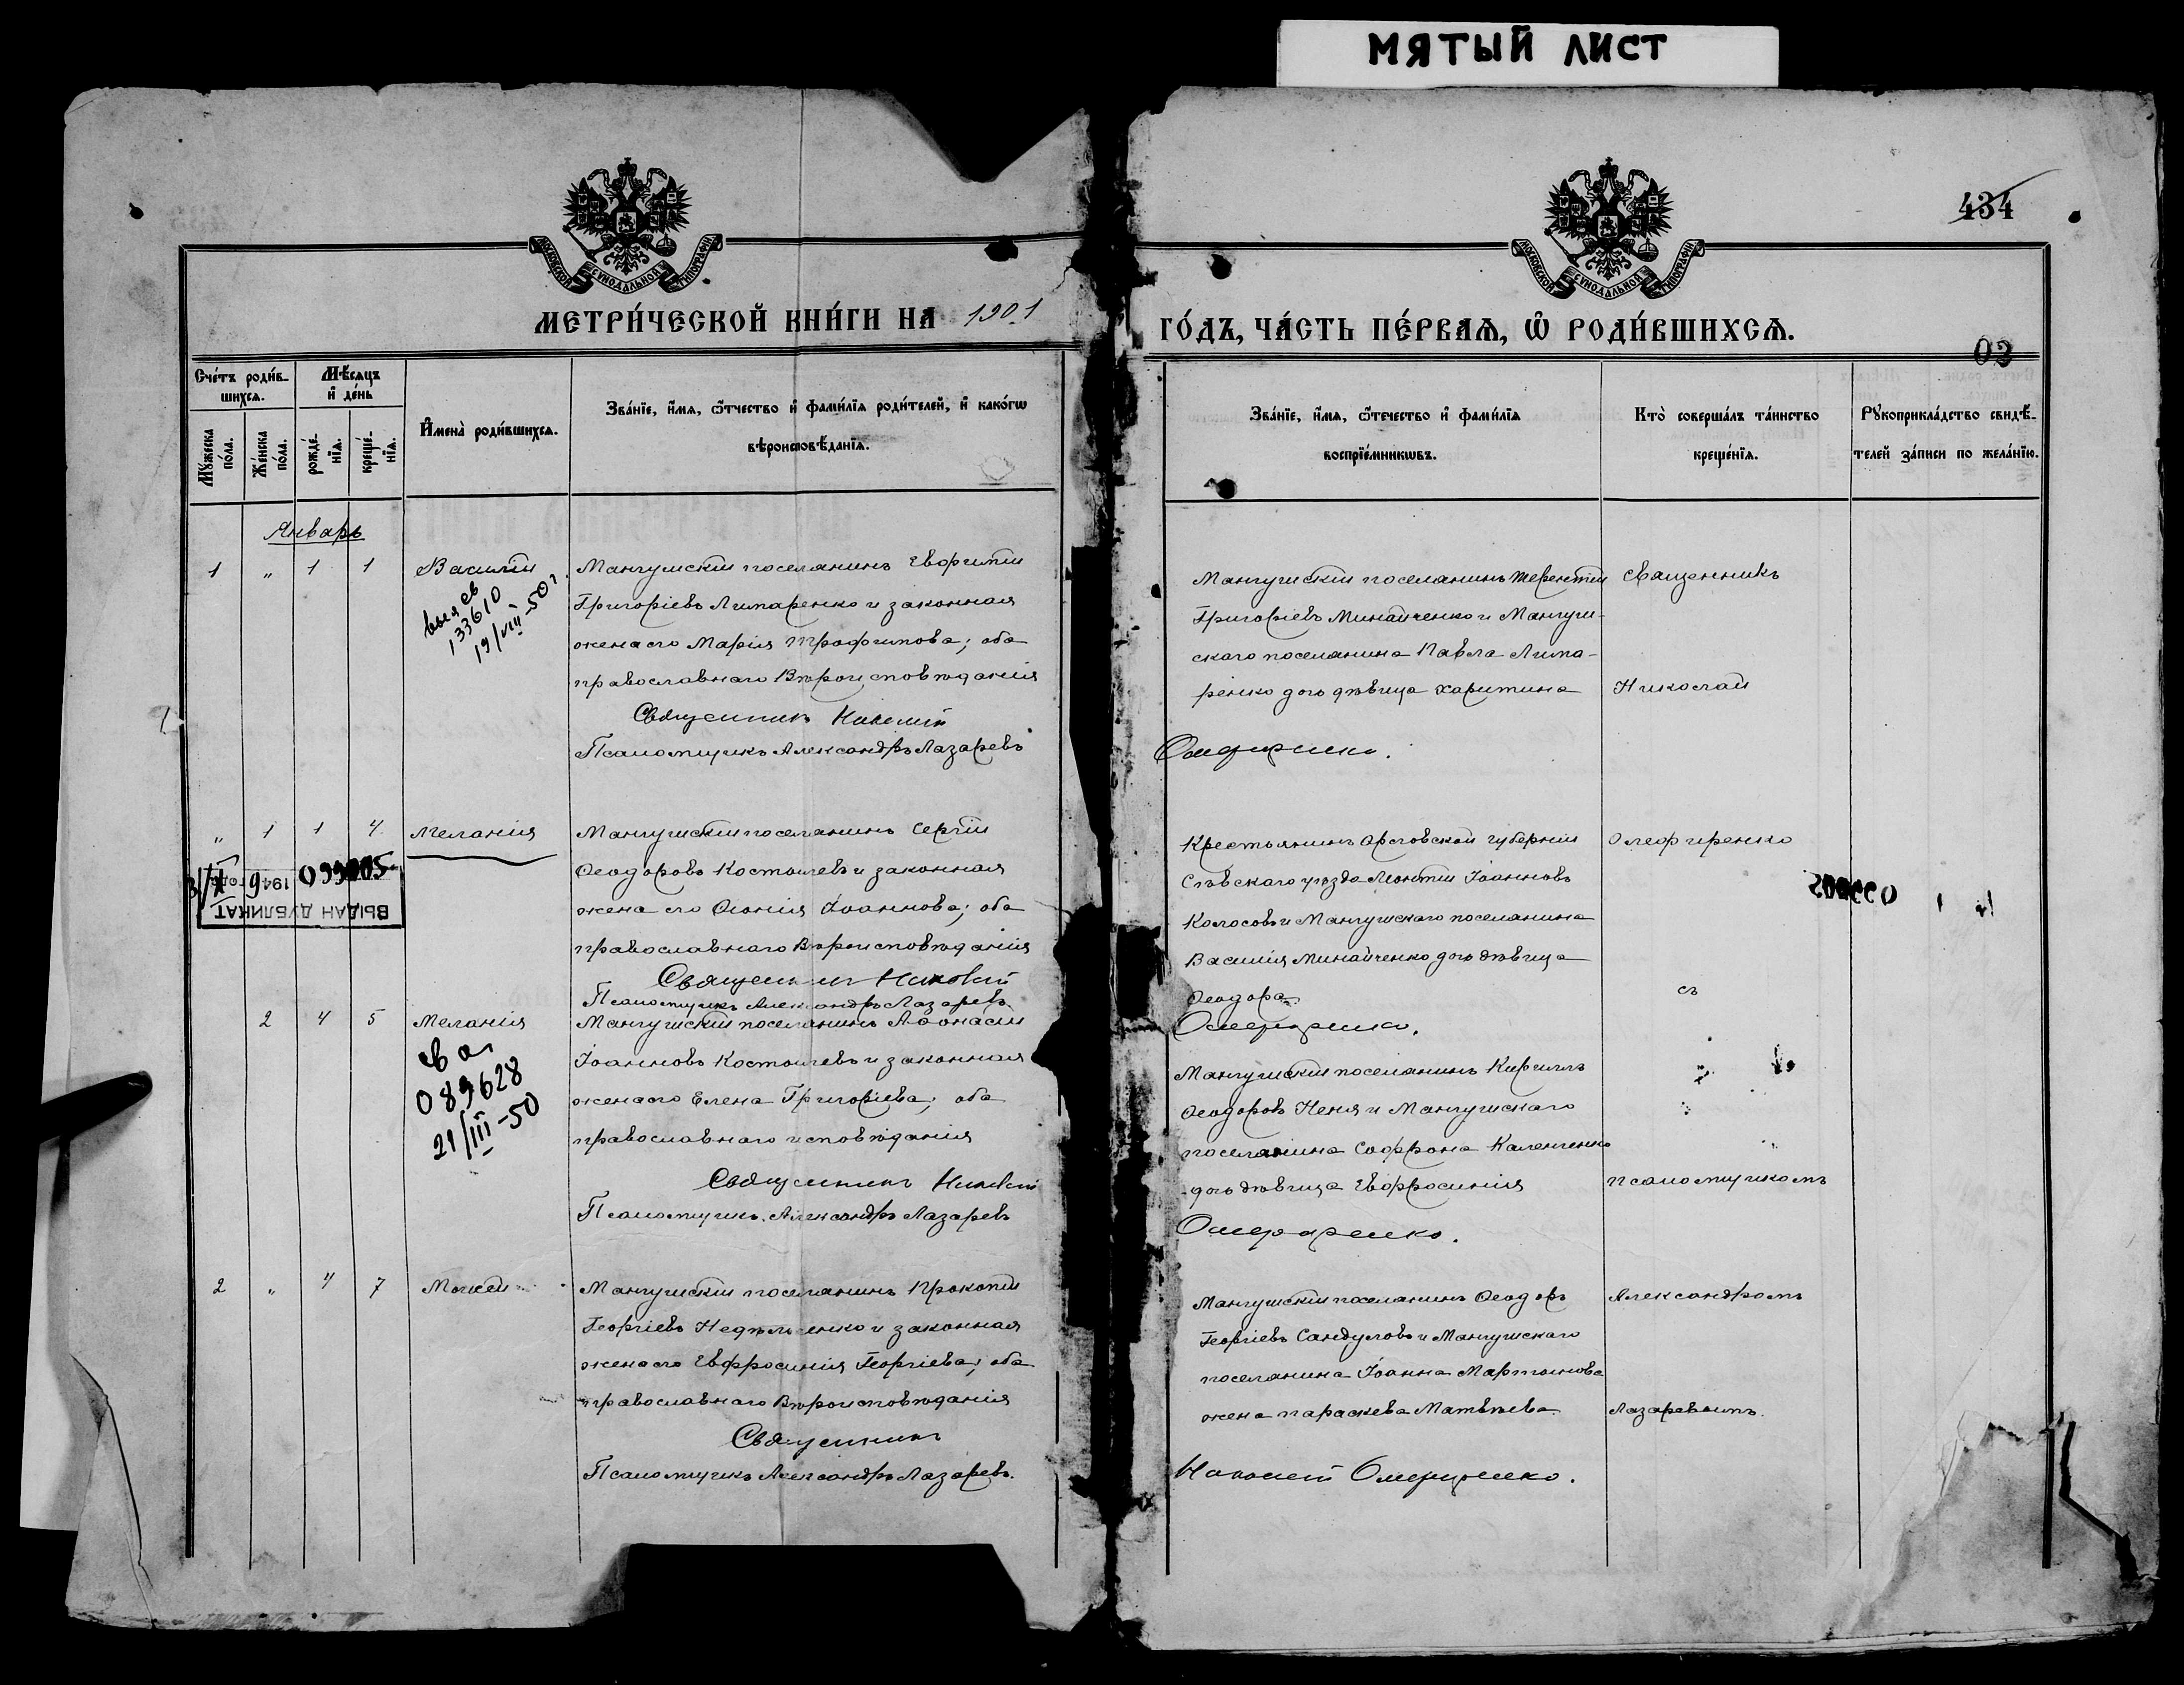 МЯТЫЙ ЛИСТ
434
МОСКОВСКОЙ СУНОДАЛЬНОЙ ТИПОГРАФІИ
МОСКОВСКОЙ СУНОДАЛЬНОЙ ТИПОГРАФІИ
МЕТРИ́ЧЕСКОЙ КНИ́ГИ НА 1901
ГО́ДЪ, ЧА́СТЬ ПЕ́РВАѦ, Ѡ РОДИ́ВШИХСѦ.
03
Сче́тъ роди́в-
шихсѧ.
Мѣ́сѧцъ
и де́нь
Му́жеска
по́ла.
Же́нска
по́ла.
рожде́-
нїѧ.
креще́-
нїѧ.
И҆мена̀ роди́вшихсѧ.
Зва́нїе, и҆́мѧ, ѻ҆́тчество и҆ фами́лїѧ роди́телей, и҆ како́гѡ
вѣроисповѣ́данїѧ.
Зва́нїе, и҆́мѧ, ѻ҆́течество и҆ фами́лїѧ
воспрїе́мникѡвъ.
Кто̀ соверша́лъ та́инство
креще́нїѧ.
Рꙋкоприкла́дство свидѣ́-
телей за́писи по жела́нїю.
Январь
1 " 1 1 Василій
133610
19/VIII-50 г.
Мангушскій поселянинъ Евфимій
Григоріевъ Липаренко и законная
жена его Марія Трофимова; оба
православнаго Вѣроисповѣданія
Священникъ Николай
Псаломщикъ Александръ Лазаревъ
Мангушскій поселянинъ Терентій
Григоріевъ Минайченко и Мангуш-
скаго поселянина Павла Липа-
ренко дочь дѣвица Харитина
Олефиренко.
Священникъ
Николай
" 1 1 4 Меланія
ВЫДАН ДУБЛИКАТ
194 9 года
Мангушскій поселянинъ Сергій
Ѳеодоровъ Костылевъ и законная
жена его Іоаннова; оба
православнаго Вѣроисповѣданія
Священникъ Николай
Псаломщикъ Александръ Лазаревъ
Крестьянинъ Орловской губерніи
Сѣвскаго уѣзда Леонтій Іоанновъ
Колосовъ и Мангушскаго поселянина
Василія Минайченко дочь дѣвица
Ѳеодора.
Олефиренко.
Олефиренко
съ
2 4 5 Меланія
089628
21/III-50
Мангушскій поселянинъ Аѳонасій
Іоанновъ Костылевъ и законная
жена его Елена Григоріева; оба
православнаго исповѣданія
Священникъ Николай
Псаломщикъ Александръ Лазаревъ
Мангушскій поселянинъ Кириллъ
Ѳеодоровъ Неня и Мангушскаго
поселянина Софрона Каленченко
дочь дѣвица Евфросинія
Олефиренко.
псаломщикомъ
2 " 4 7 Моисей
Мангушскій поселянинъ Прокопій
Георгіевъ Недѣльченко и законная
жена его Евфросинія Георгіева; оба
православнаго Вѣроисповѣданія
Священникъ
Псаломщикъ Александръ Лазаревъ.
Мангушскій поселянинъ Ѳеодоръ
Георгіевъ Сандуловъ и Мангушскаго
поселянина Іоанна Мартынова
жена Параскева Матвѣева.
Николай Олефиренко.
Александромъ
Лазаревымъ.